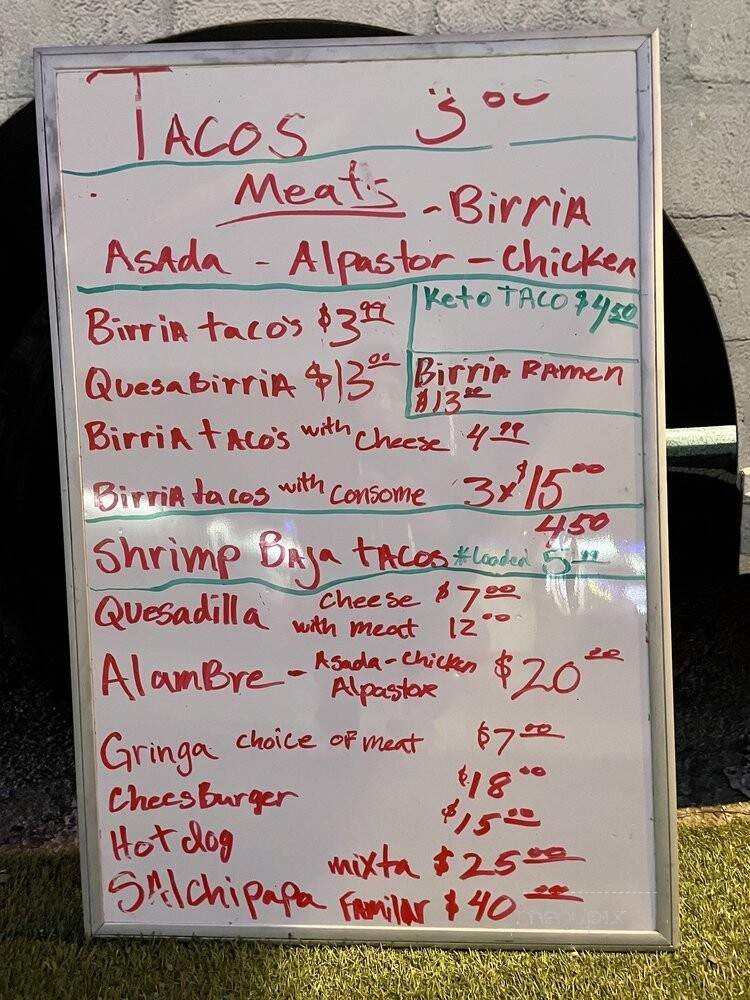 TACOS 3.00
Meats - BirriA
AsAda - Alpastor - Chicken
BirriA taco's $3.99
Keto TACO $4.50
QuesaBirriA $13.00
BirriA RAmen
$13.00
BirriA tAco's with cheese 4.99
BirriA tacos with consome 3x$15.00
Shrimp BAJa tAcos 4.50
*Loaded 5.99
Quesadilla cheese $7.00
with meat 12.00
AlamBre - Asada-Chicken $20.00
Alpastore
Gringa choice of meat $7.00
CheesBurger $18.00
Hot dog $15.00
SAlchipapa mixta $25.00
FAmiliar $40.00